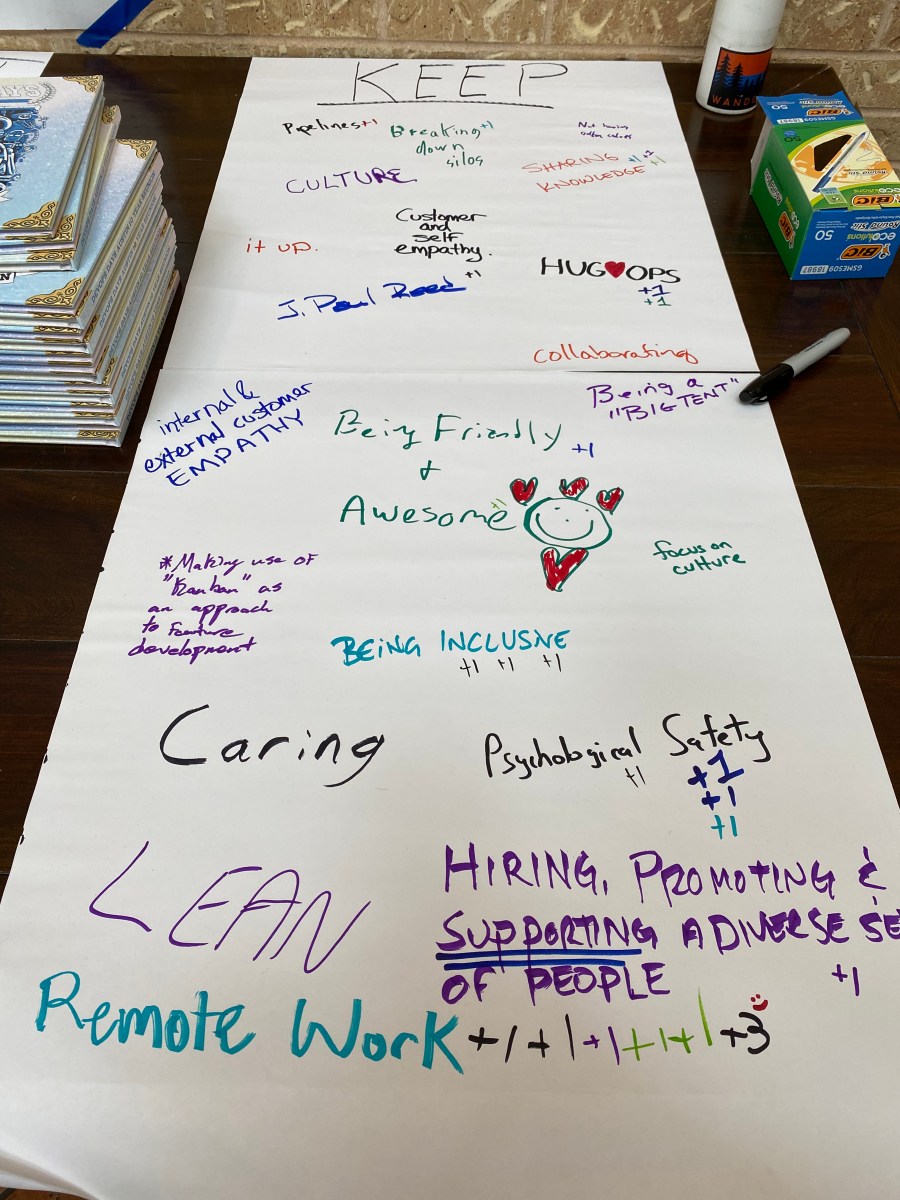 KEEP
Pipelines +1
Breaking +1
down
silos
CULTURE
SHARING +1 +2 +1
KNOWLEDGE
it up.
Customer
and
self
empathy.
HUG♥OPS
+1
+1
J. Paul Reed +1
collaborating
internal &
external customer
EMPATHY
Being a
"BIG TENT"
Being Friendly +1
+
Awesome +1
focus on
culture
*Making use of
"Kanban" as
an approach
to feature
development
BEING INCLUSIVE
+1 +1 +1
Caring
Psychological Safety
+1 +1
+1
+1
LEAN
HIRING, PROMOTING &
SUPPORTING A DIVERSE SE
OF PEOPLE +1
Remote Work +1 +1 +1 +1 +1 +3
WAND
50
BIC
Round Stic
ecolutions
BIC
50
GSME509
18987